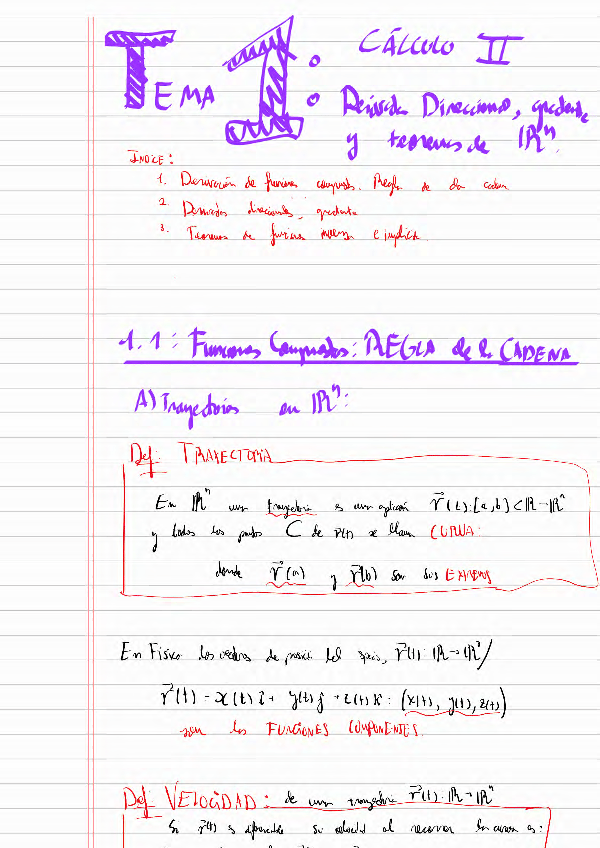 TEMA 1: CÁLCULO II
Derivadas Direccionales, gradiente
y teoremas de ℝⁿ.
ÍNDICE:
1. Derivación de funciones compuestas. Regla de la cadena
2. Derivadas direccionales, gradiente
3. Teoremas de función inversa e implícita.
1.1: Funciones Compuestas: REGLA de la CADENA
A) Trayectorias en ℝⁿ:
Def: TRAYECTORIA
En ℝⁿ una trayectoria es una aplicación r⃗(t):[a,b]⊂ℝ→ℝⁿ
y todos los puntos C de r⃗(t) se llaman CURVA.
donde r⃗(a) y r⃗(b) son sus EXTREMOS
En Física los vectores de posición del , r⃗(t): ℝ→ℝ³/
r⃗(t) = x(t)i + y(t)j + z(t)k = (x(t), y(t), z(t))
son las FUNCIONES COMPONENTES.
Def VELOCIDAD: de una trayectoria r⃗(t): ℝ→ℝⁿ
Si r⃗(t) es diferenciable su velocidad al recorrer la curva es: